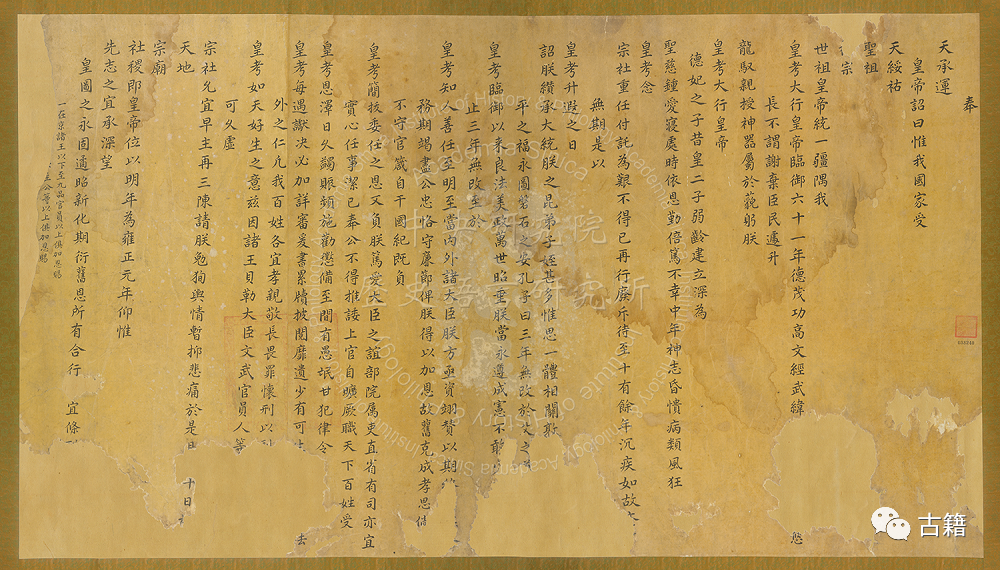 奉
天承運
皇帝詔曰惟我國家受
天綏祐
聖祖
宗
世祖皇帝統一疆隅我
皇考大行皇帝臨御六十一年德茂功高文經武緯
愁
長不謂謝棄臣民遽升
龍馭親授神器屬於藐躬朕
皇考大行皇帝
德妃之子昔皇二子弱齡建立深為
聖慈鍾愛寢處時依恩勤倍篤不幸中年神志昏憒病類風狂
皇考念
宗社重任付託為艱不得已再行廢斥待至十有餘年沉疾如故
無期是以
皇考升遐之日
詔朕纘承大統朕之昆弟子姪甚多惟思一體相關敦
平之福永固磐石之安孔子曰三年無改於父之
皇考臨御以來良法美政萬世昭垂朕當永遵成憲不敢
止三年無改至於
皇考知人善任至明至當內外諸大臣朕方亟資翊贊以期
務期竭盡公忠恪守廉節俾朕得以加恩故舊克成孝思
不守官箴自干國紀既負
皇考簡拔委任之恩又負朕篤愛大臣之誼部院屬吏直省有司亦宜
實心任事潔己奉公不得推諉上官自曠厥職天下百姓受
皇考恩澤日久蠲賑頻施勸懲備至間有愚氓甘犯律令
皇考每遇讞決必加詳審爰書累牘披閱靡遺少有可
去
外之仁凡我百姓各宜孝親敬長畏罪懷刑以
皇考如天好生之意茲因諸王貝勒大臣文武官員人等
可久虛
宗社允宜早主再三陳請朕勉徇輿情暫抑悲痛於是
十日
天地
宗廟
社稷即皇帝位以明年為雍正元年仰惟
先志之宜承深望
皇圖之永固適昭新化期衍舊恩所有合行
宜條
一在京諸王以下至九品官員以上俱加恩賜
公等以上俱加恩賜
中央研究院
史語言研究所
古籍